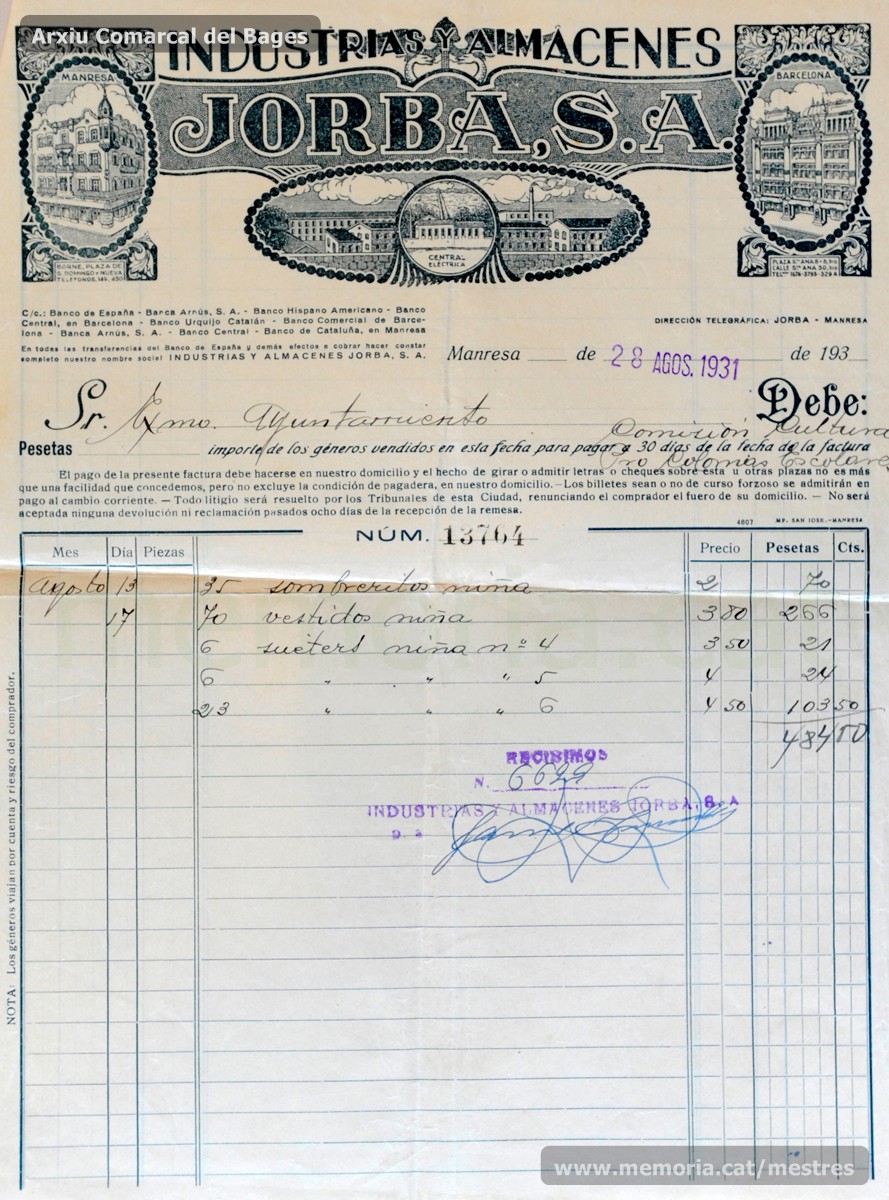 Arxiu Comarcal del Bages
INDUSTRIAS Y ALMACENES
JORBA, S.A.
MANRESA
BORNE, PLAZA DE
S. DOMINGO Y NUEVA
BARCELONA
PLAZA Sta ANA 8-9, bis
CALLE Sta ANA 30, bis
CENTRAL
ELÉCTRICA
C/c.: Banco de España - Banca Arnús, S. A. - Banco Hispano Americano - Banco
Central, en Barcelona - Banco Urquijo Catalán - Banco Comercial de Barce-
lona - Banca Arnús, S. A. - Banco Central - Banco de Cataluña, en Manresa
En todas las transferencias del Banco de España y demás efectos a cobrar hacer constar
completo nuestro nombre social INDUSTRIAS Y ALMACENES JORBA, S. A.
DIRECCIÓN TELEGRÁFICA: JORBA - MANRESA
Manresa de 28 AGOS. 1931 de 193
Debe:
Sr. Exmo. Ayuntamiento
Comisión Cultura
Pro Colonias Escolares
Pesetas importe de los géneros vendidos en esta fecha para pagar a 30 días de la fecha de la factura
El pago de la presente factura debe hacerse en nuestro domicilio y el hecho de girar o admitir letras o cheques sobre esta u otras plazas no es más
que una facilidad que concedemos, pero no excluye la condición de pagadera, en nuestro domicilio.-Los billetes sean o no de curso forzoso se admitirán en
pago al cambio corriente. - Todo litigio será resuelto por los Tribunales de esta Ciudad, renunciando el comprador el fuero de su domicilio. - No será
aceptada ninguna devolución ni reclamación pasados ocho días de la recepción de la remesa.
4607 IMP. SAN JOSE.-MANRESA
NÚM. 13764
Mes Día Piezas Precio Pesetas Cts.
Agosto 13 35 sombreritos niña 2 70
17 70 vestidos niña 3 80 266
6 suéters niña nº 4 3 50 21
6 " " " 5 4 24
23 " " " 6 4 50 103 50
484 50
RECIBIMOS
N. 6629
INDUSTRIAS Y ALMACENES JORBA, S. A
P. a
NOTA: Los géneros viajan por cuenta y riesgo del comprador.
www.memoria.cat/mestres